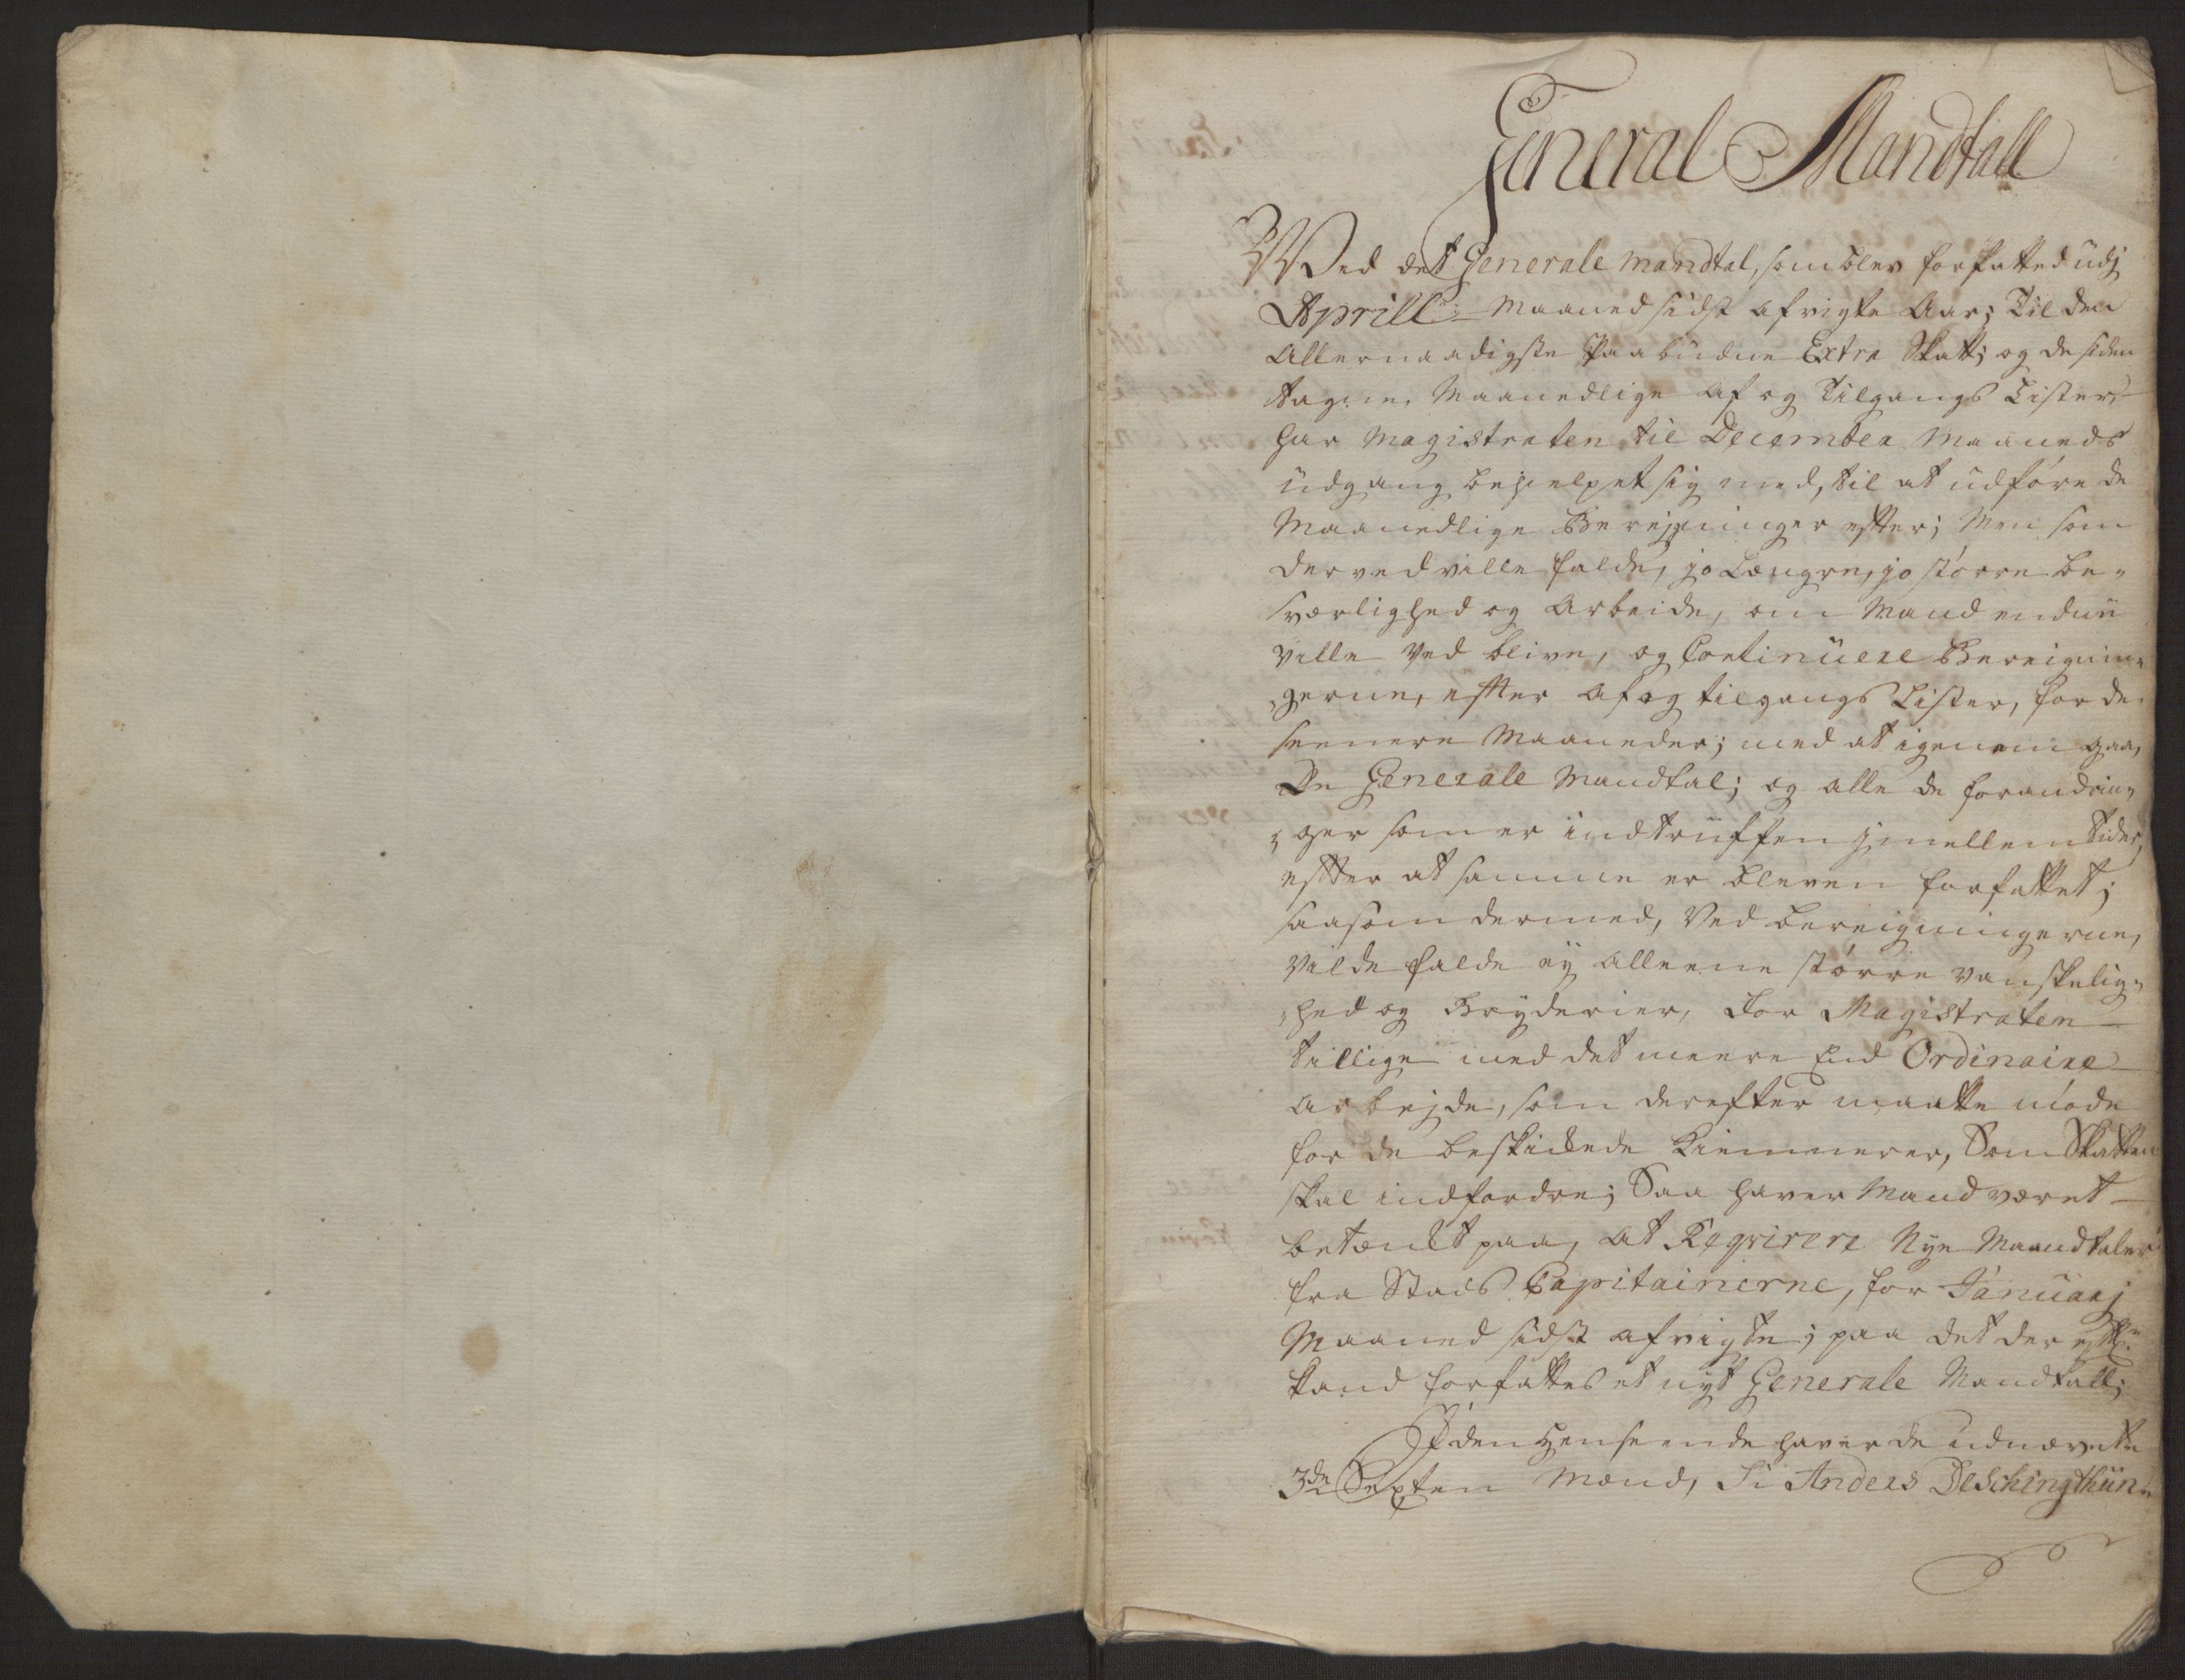 General Mandtall
Wed det Generale mandtal, som blev forfatted udj
Aprill Maaned sidst afvigte Aar; Til den
Allernaadigste Paabudne Extra Skatt; og de siden
tagne, Maanedlige af og Tilgangs Lister,
har Magistraten til December Maaneds
udgang behielpet sig med, til at udføre de
Maanedlige Berejgninger effter; Men som
derved ville falde, jo Længre, jo større be¬
sværlighed og Arbeide, om Mand endnu
ville ved blive, og Continuere Bereignin¬
gerne, effter af og tilgangs Lister, for de
seenere Maaneder; med at igenom gaa,
De Generale Mandtal; og alle de forandrin¬
ger som er indtruffen jmellem tider,
effter at samme er bleven forfattet;
saasom dermed, Ved bereigningerne,
vilde falde ej alleene større vanskelig¬
hed og Bryderier, for Magistraten
tillige med det meere End Ordinaire
arbejde, som derefter maatte møde
for de beskickede Kiemnerer, Som Skatten
skal indfordre; Saa haver Mand været
betænckt paa, at Reqvirere Nye Maandtaler
fra Stads Capitainerne, for Januarj
Maaned sidst afvigte; paa det der effter
kand forfattes et nyt Generale Mandtall;
I den Henseende haver de udnævnte
3de Sexten Mænd, Sr Anders DeSchingthun¬